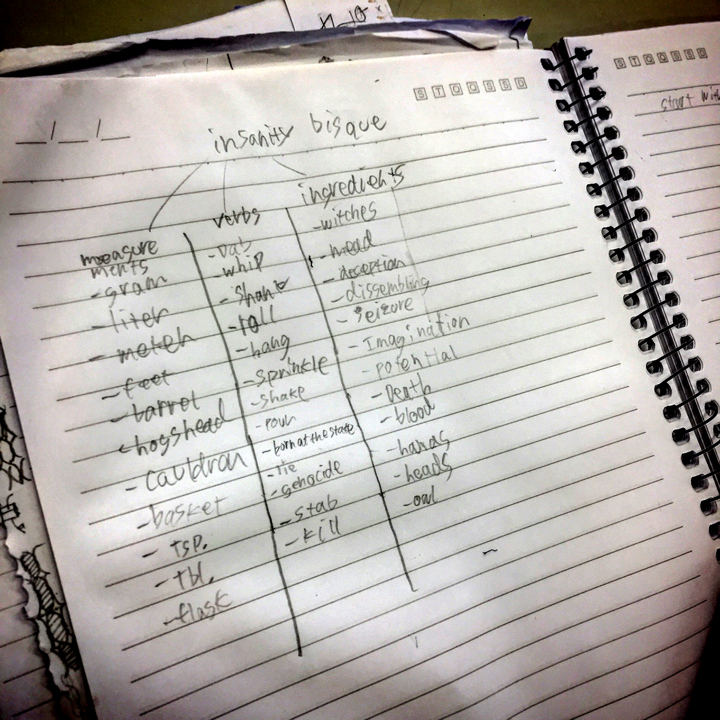 STOCSED
STOCSED
start
__/__/__
insanity bisque
measure
ments
- gram
- liter
- meteh
- feet
- barrel
- hogshead
- cauldran
- basket
- tsp.
- tbl.
- flask
verbs
- whip
- hang
- sprinkle
- shake
- pour
- born at the state
- tie
- genocide
- stab
- kill
ingredients
- witches
- mead
- deception
- dissembling
- seizure
- Imagination
- potential
- Death
- blood
- hands
- heads
- owl